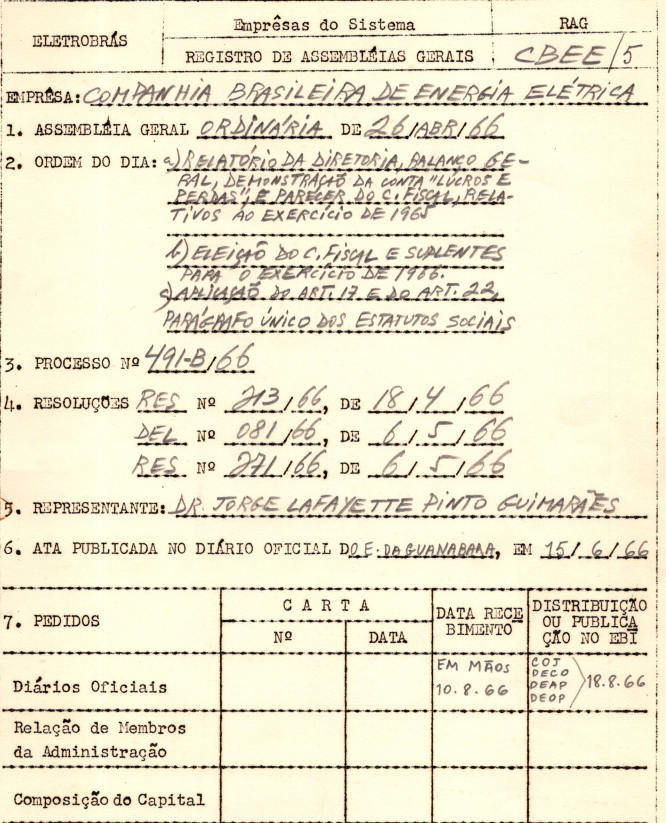 ELETROBRÁS
Emprêsas do Sistema
RAG
REGISTRO DE ASSEMBLÉIAS GERAIS
CBEE/5
EMPRÊSA: COMPANHIA BRASILEIRA DE ENERGIA ELÉTRICA
1. ASSEMBLÉIA GERAL ORDINÁRIA DE 26/ABR/66
2. ORDEM DO DIA: a) RELATÓRIO DA DIRETORIA, BALANÇO GE-
RAL, DEMONSTRAÇÃO DA CONTA "LUCROS E
PERDAS", E PARECER DO C. FISCAL, RELA-
TIVOS AO EXERCÍCIO DE 1965
b) ELEIÇÃO DO C. FISCAL E SUPLENTES
PARA O EXERCÍCIO DE 1966.
c) APLICAÇÃO DO ART. 17 E DO ART. 22,
PARÁGRAFO ÚNICO DOS ESTATUTOS SOCIAIS
3. PROCESSO Nº 491-B/66
4. RESOLUÇÕES RES Nº 213/66, DE 18/4/66
DEL Nº 081/66, DE 6/5/66
RES Nº 271/66, DE 6/5/66
5. REPRESENTANTE: DR. JORGE LAFAYETTE PINTO GUIMARÃES
6. ATA PUBLICADA NO DIÁRIO OFICIAL DO E. DA GUANABARA, EM 15/6/66
7. PEDIDOS
CARTA
Nº
DATA
DATA RECE
BIMENTO
DISTRIBUIÇÃO
OU PUBLICA
ÇÃO NO EBI
Diários Oficiais
EM MÃOS
10.8.66
COJ
DECO
DEAP
DEOP
18.8.66
Relação de Membros
da Administração
Composição do Capital